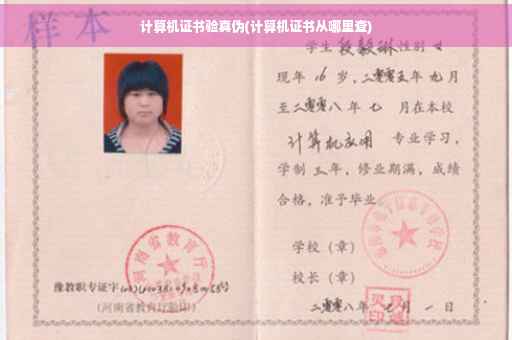 计算机证书验真伪(计算机证书从哪里查)
样本
学生段毅琳性别女
现年16岁，二零零五年九月
至二零零八年七月在本校
计算机应用 专业学习，
学制三年，修业期满，成绩
合格，准予毕业
学校（章）
校长（章）
二零零八年七月一日
河南省教育厅
豫教职专证字
(河南省教育厅验印)